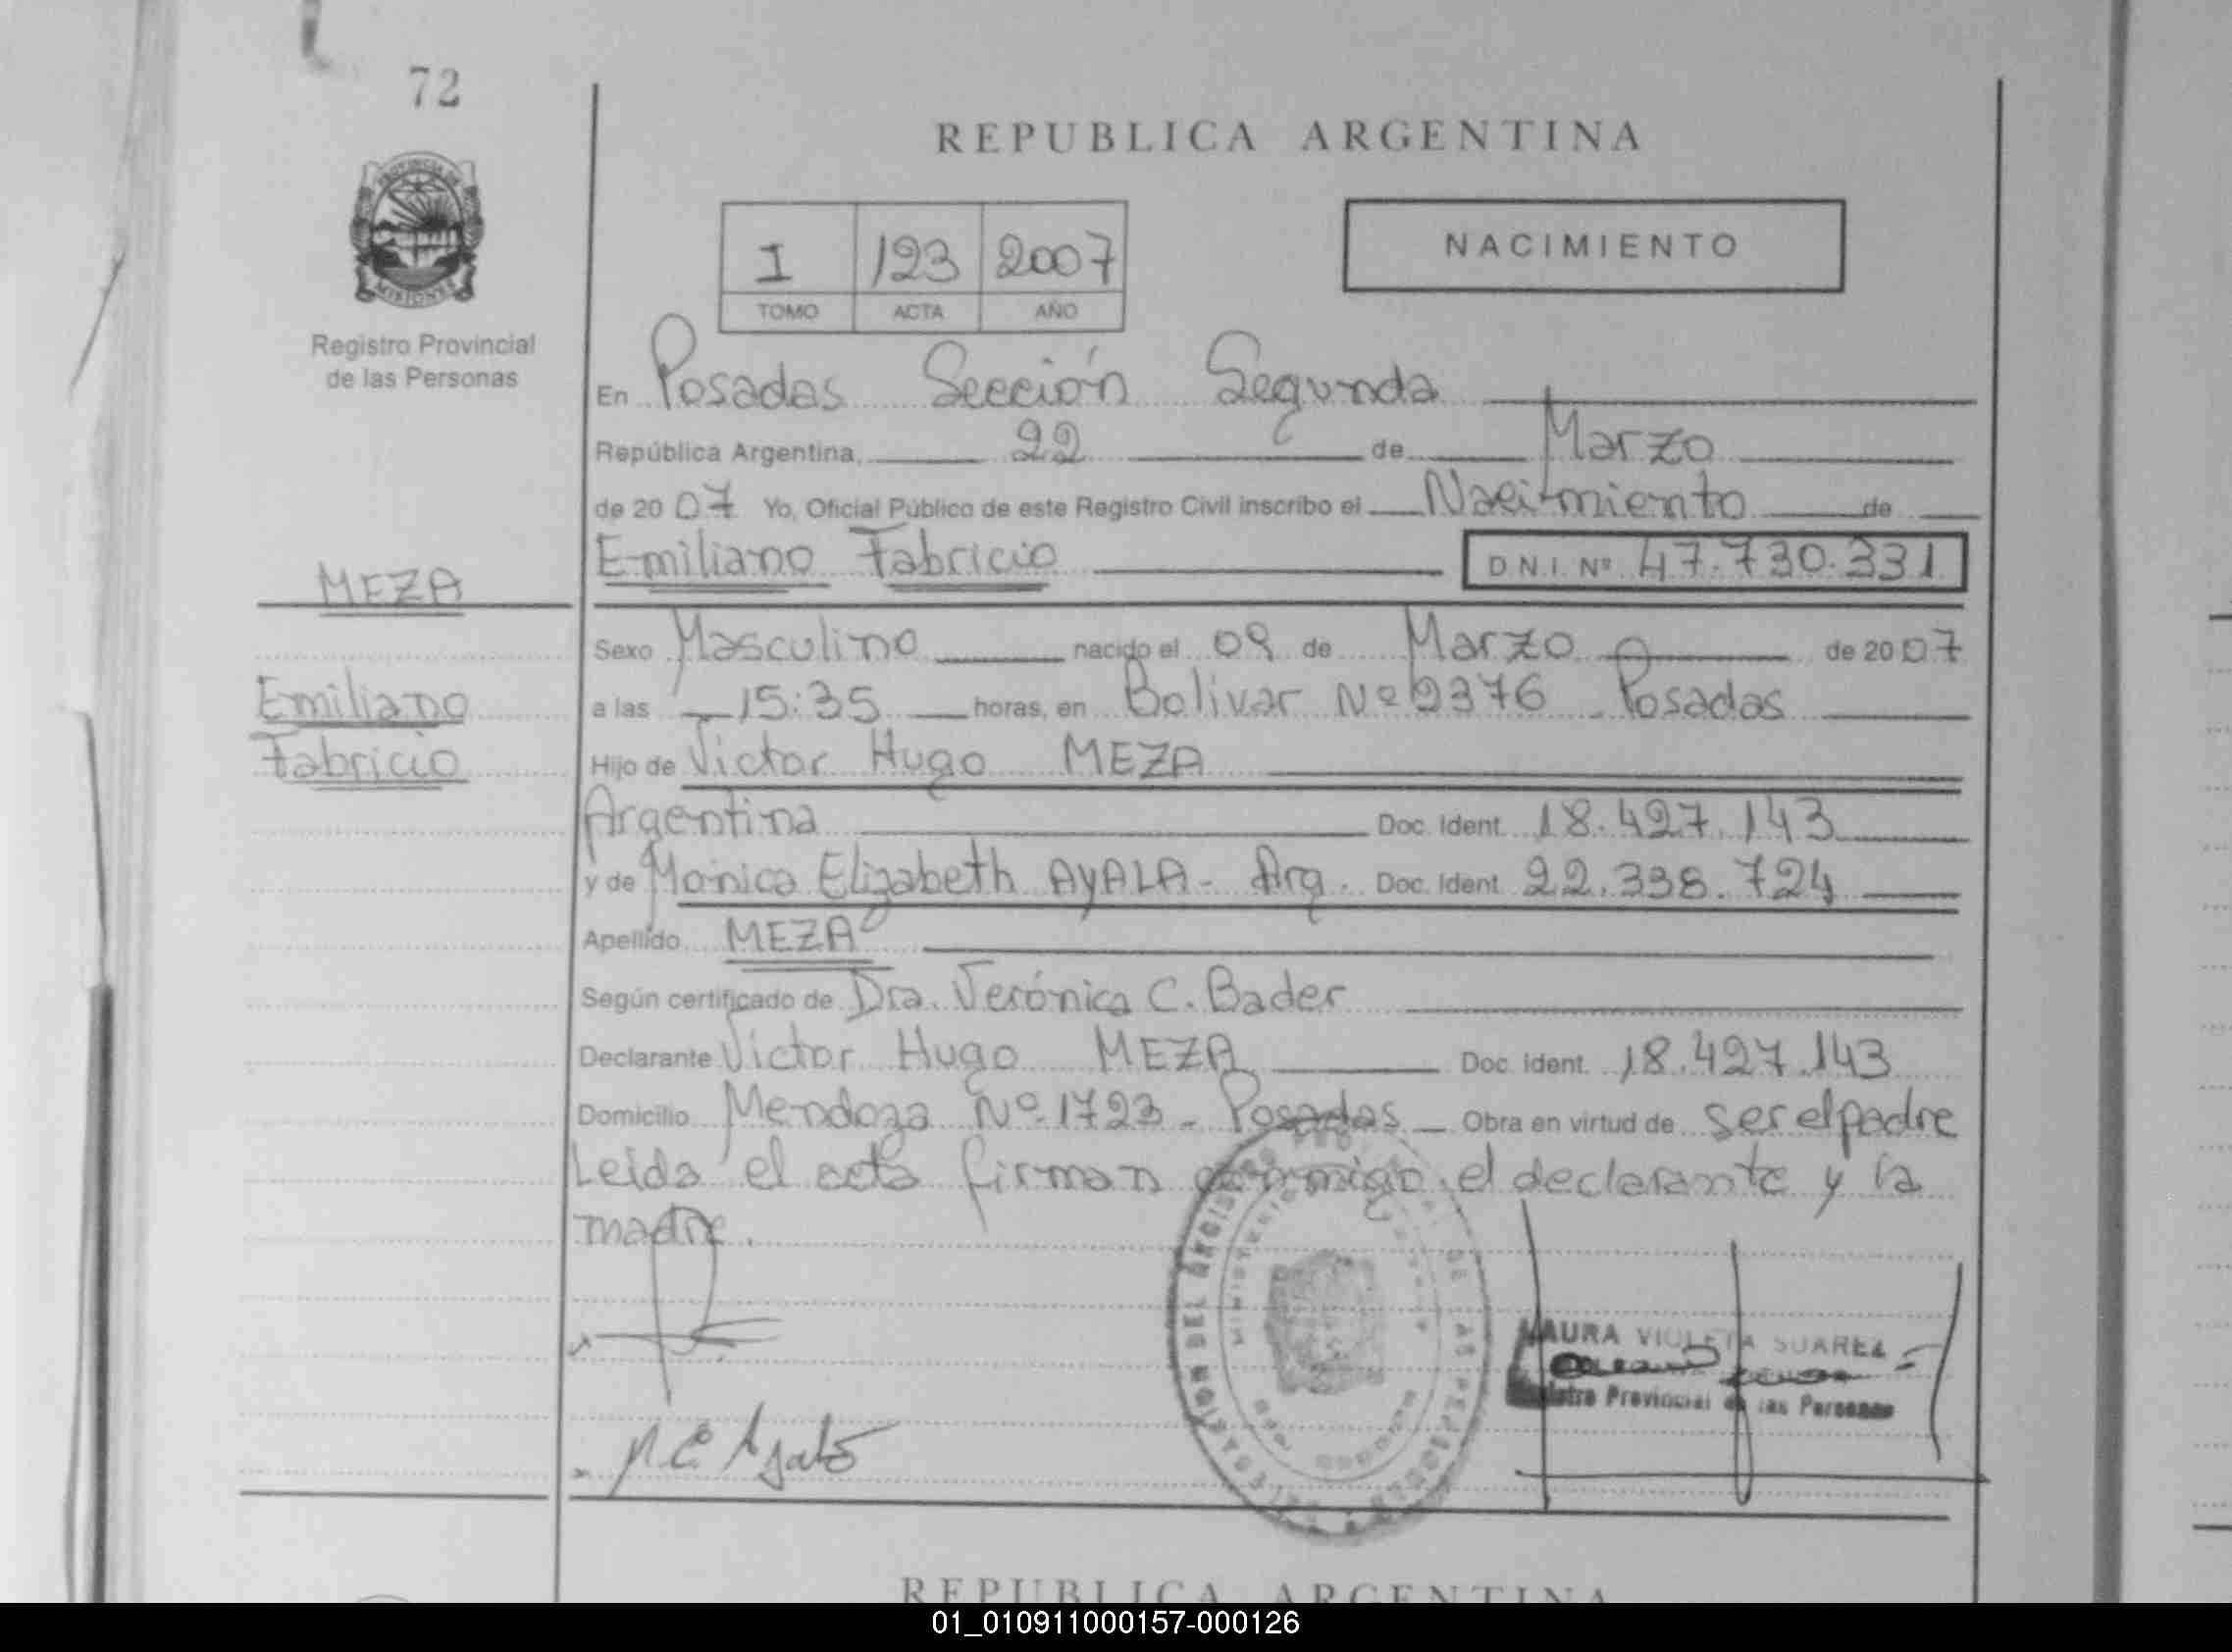 72
PROVINCIA DE
MISIONES
Registro Provincial
de las Personas
REPUBLICA ARGENTINA
I 123 2007
TOMO ACTA AÑO
NACIMIENTO
En Posadas Sección Segunda
República Argentina, 22 de Marzo
de 2007 Yo, Oficial Público de este Registro Civil inscribo el Nacimiento de
Emiliano Fabricio D.N.I. Nº 47.730.331
MEZA
Sexo Masculino nacido el 09 de Marzo de 2007
Emiliano
a las 15:35 horas, en Bolivar Nº 2376 - Posadas
Fabricio
Hijo de Victor Hugo MEZA
Argentina Doc. Ident. 18.427.143
y de Mónica Elizabeth AYALA - Arg. Doc. Ident. 22.338.724
Apellido MEZA
Según certificado de Dra. Verónica C. Bader
Declarante Victor Hugo MEZA Doc. Ident. 18.427.143
Domicilio Mendoza Nº 1723 - Posadas - Obra en virtud de ser el padre
Leída el acta firman conmigo el declarante y la
madre.
LAURA VIOLETA SUAREZ
Registro Provincial de las Personas
M.E. Ayala
REPUBLICA ARGENTINA
01_010911000157-000126